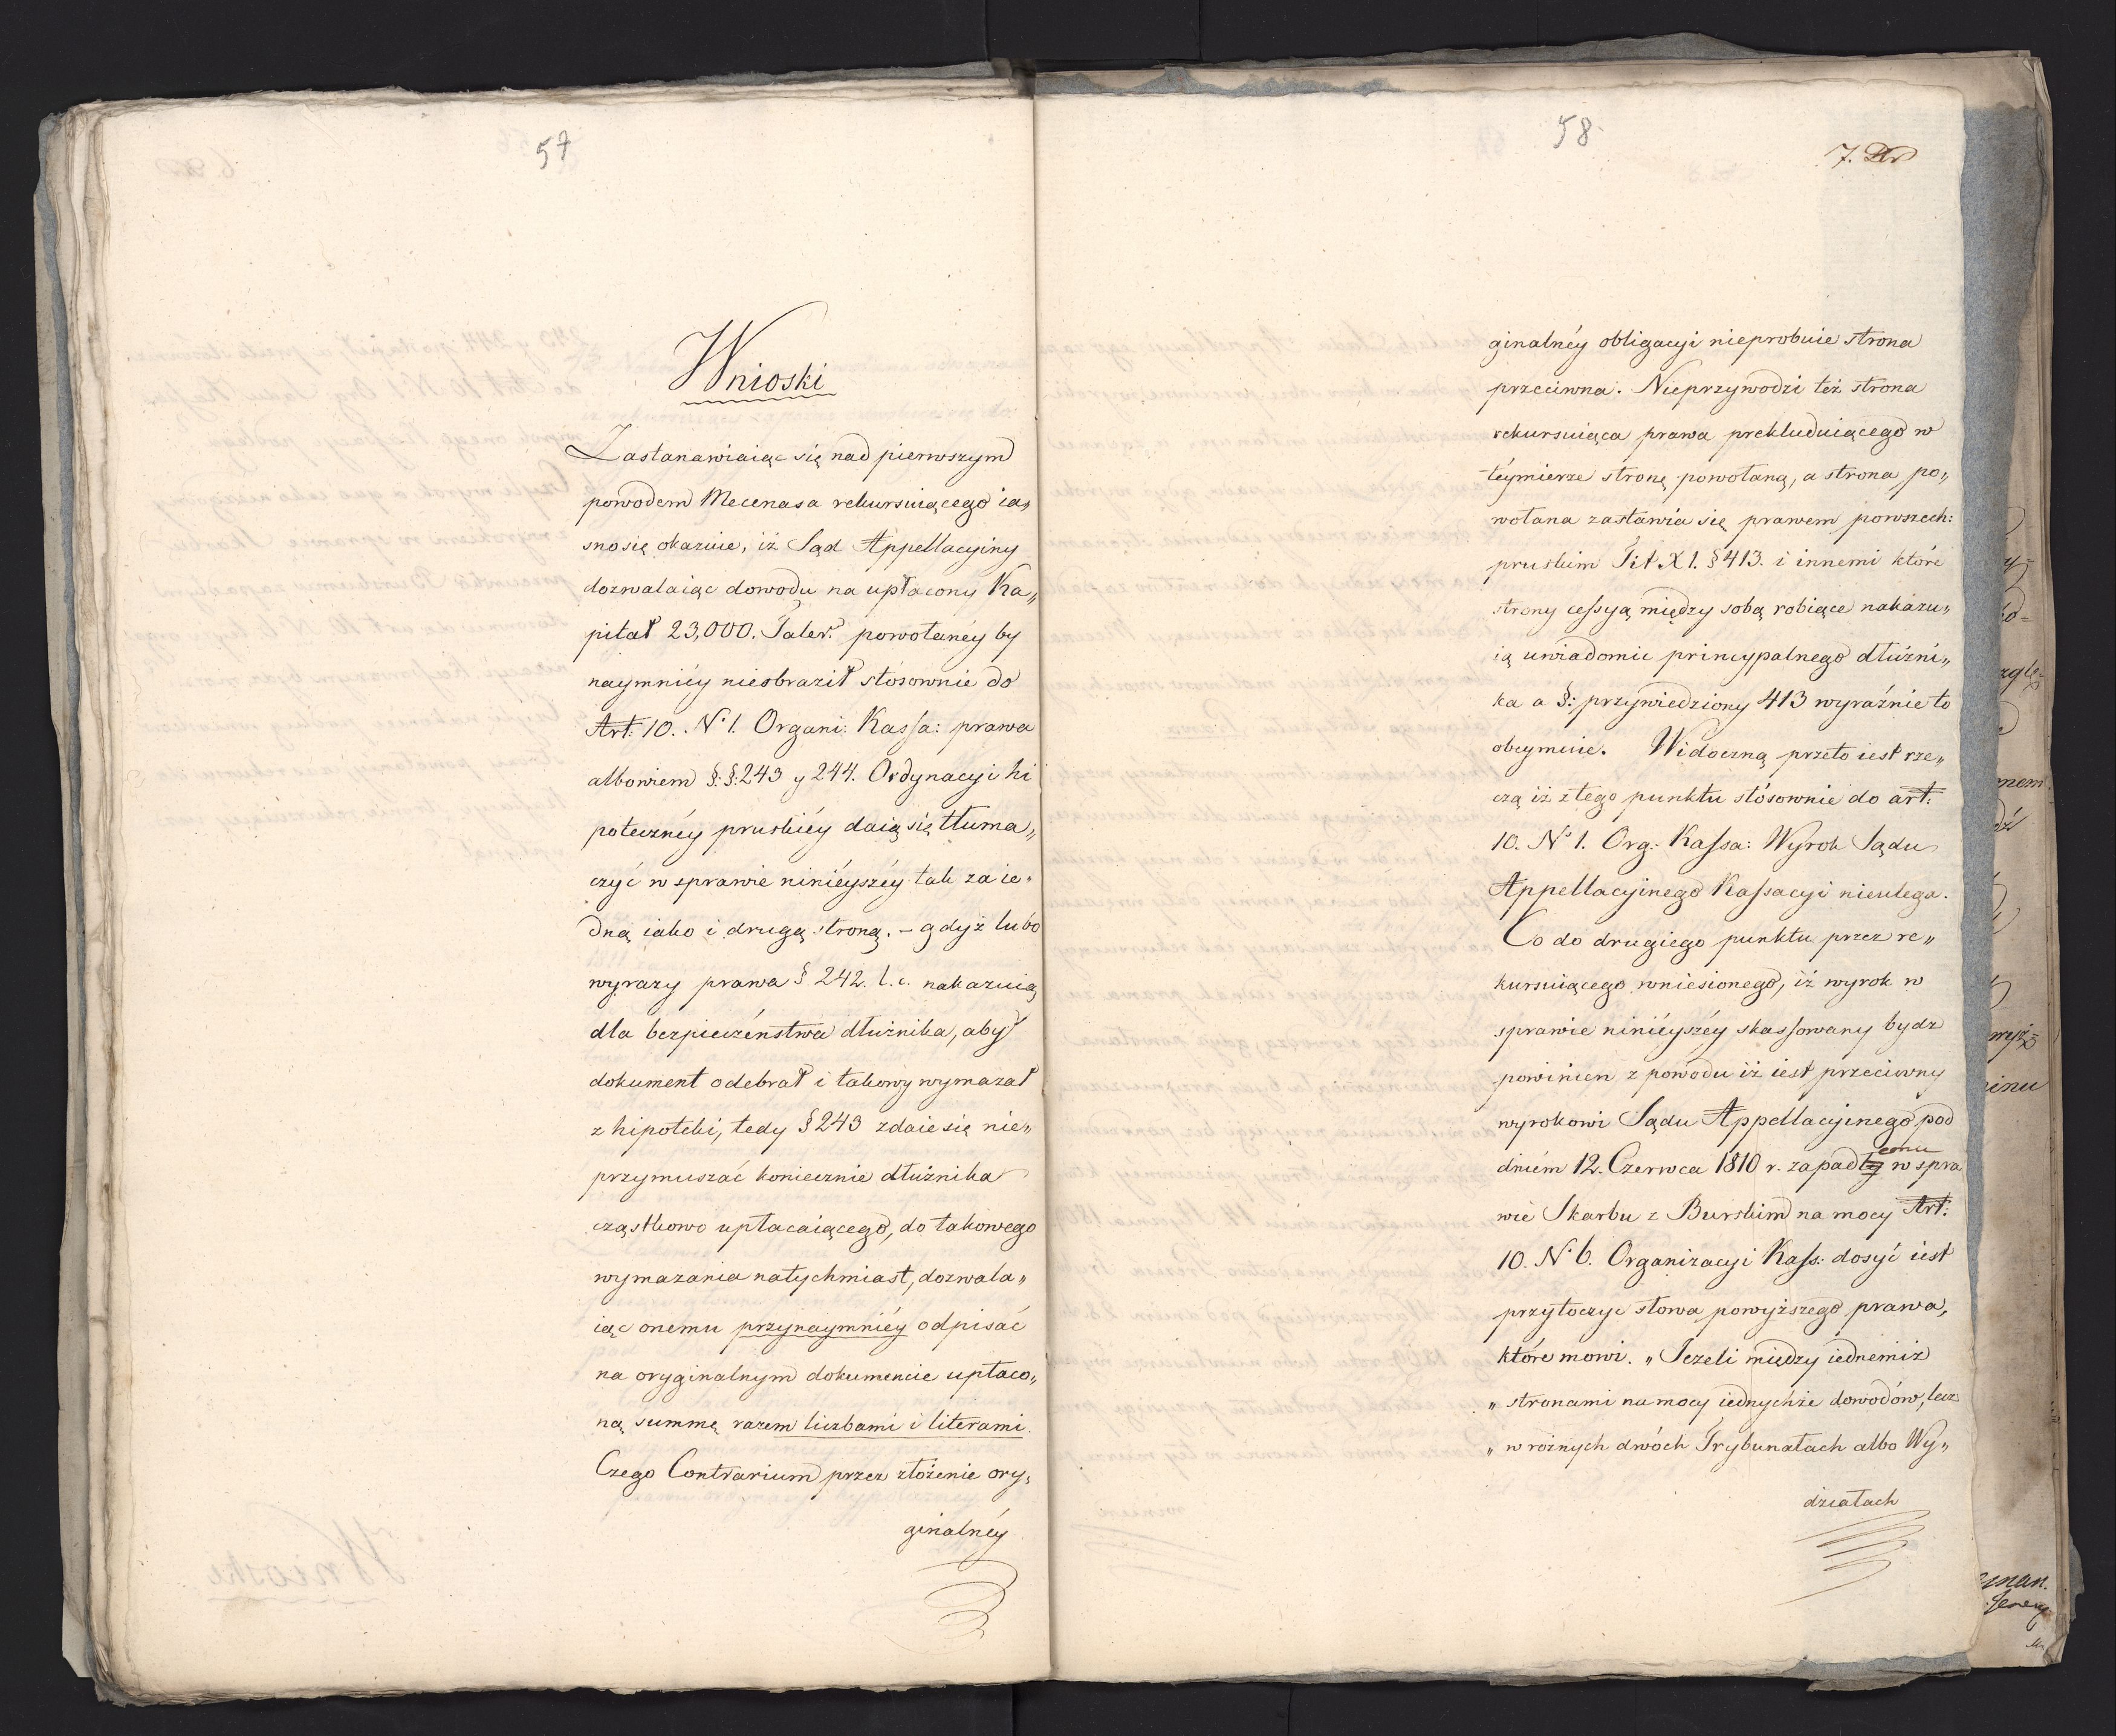 57
Wnioski
Zastanawiaiąc się nad pierwszym
powodem Mecenasa rekursuiącego ia„
sno się okazuie, iż Sąd Appellacyiny
dozwalaiąc dowodu na upłacony Ka„
pitał 23,000. Taler. powołanéy by
naymniéy nieobraził stósownie do
Art: 10. N. 1. Organi: Kassa: prawa
albowiem §.§. 243 y 244. Ordynacyi hi
poteczney pruskiéy daią się tłuma„
czyć w sprawie niniéyszéy tak za ie„
dną iako i drugą stroną. – gdyż lubo
wyrazy prawa § 242. l.c. nakazuią
dla bezpieczénstwa dłużnika, aby
dokument odebrał i takowy wymazał
z hipoteki, tedy § 243 zdaie się nie„
przymuszać koniecznie dłużnika
cząstkowo upłacaiącego, do takowego
wymazania natychmiast, dozwala„
iąc onemu przynaymniéy odpisać
na oryginalnym dokumencie upłaco„
ną summę razem liczbami i literami.
Czego Contrarium przez złożenie ory„
ginalnéy
58
7.
ginalnéy obligacyi nieprobuie strona
przeciwna. Nieprzywodzi też strona
rekursuiąca prawa prekluduiącego w
téymierze stronę powołaną, a strona po„
wołana zastawia się prawem powszech:
pruskim Tit XI. § 413. i innemi które
strony cessyą między sobą robiące nakazu„
ią uwiadomic princypalnego dłużni„
ka a §: przywiedziony 413 wyraźnie to
obeymuie. Widoczną przeto iest rze„
czą iż z tego punktu stósownie do art:
10. N 1. Org: Kassa: Wyrok Sądu
Appellacyinego Kassacyi nieulega.
Co do drugiego punktu przez re„
kursuiącego wniesionego, iż wyrok w
sprawie niniéyszéy skassowany bydz
powinien z powodu iż iest przeciwny
wyrokowi Sądu Appellacyinego pod
dniém 12. Czerwca 1810 r. zapadłemu w spra
wie Skarbu z Burskim na mocy Art:
10. N 6. Organizacyi Kass: dosyć iest
przytoczyc słowa powyższego prawa,
które mowi. „Jeżeli między iednemiż
„stronami na mocy iednychże dowodów, lecz
„w róźnych dwóch Trybunałach albo Wy„
działach